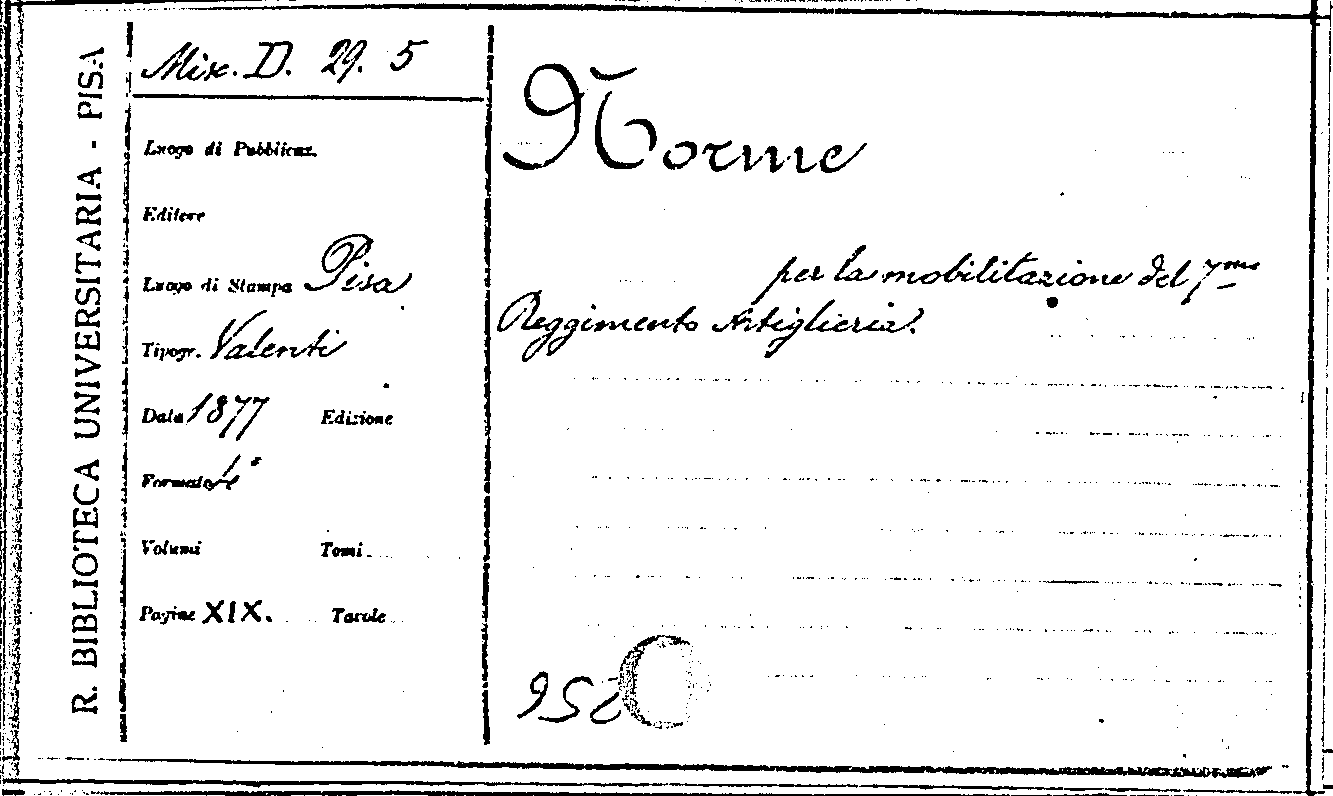 R. BIBLIOTECA UNIVERSITARIA - PISA
Misc. D. 29. 5
Luogo di Pubblicaz.
Editore
Luogo di Stampa Pisa
Tipogr. Valenti
Data 1877 Edizione
Formato 4°
Volumi Tomi
Pagine XIX. Tavole
Norme
per la mobilitazione del 7mo
Reggimento Artiglieria.